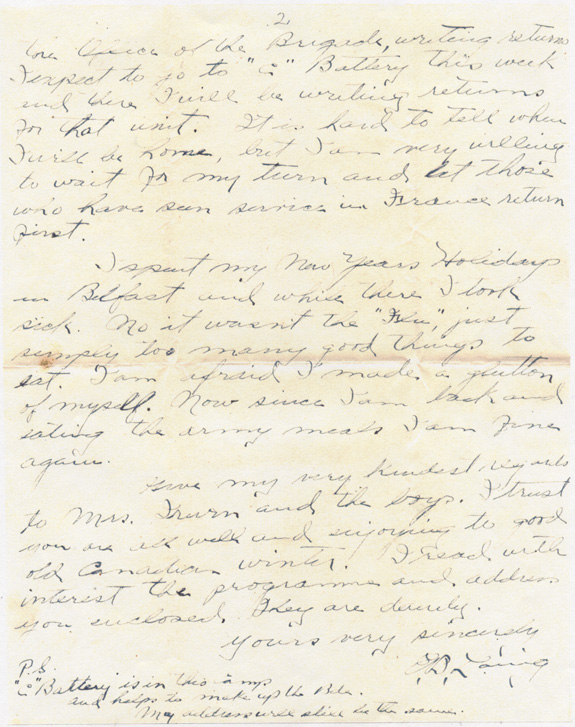 2
the Office of the Brigade, writing returns
I expect to go to "C" Battery this week
and there I will be writing returns
for that unit. It is hard to tell when
I will be home, but I am very willing
to wait for my turn and let those
who have seen service in France return
first.
I spent my New Years Holidays
in Belfast and while there I took
sick. No it wasn't the "Flu", just
simply too many good things to
eat. I am afraid I made a glutton
of myself. Now since I am back and
eating the army meals I am fine
again.
Give my very kindest regards
to Mrs. and the boys. I trust
you are all well and enjoying to good
old Canadian winter. I read with
interest the programme and address
you enclosed. They are dandy.
Yours very sincerely
Laing
P.S.
"C" Battery is in this camp
and helps to make up the Bde.
My address will still be the same.